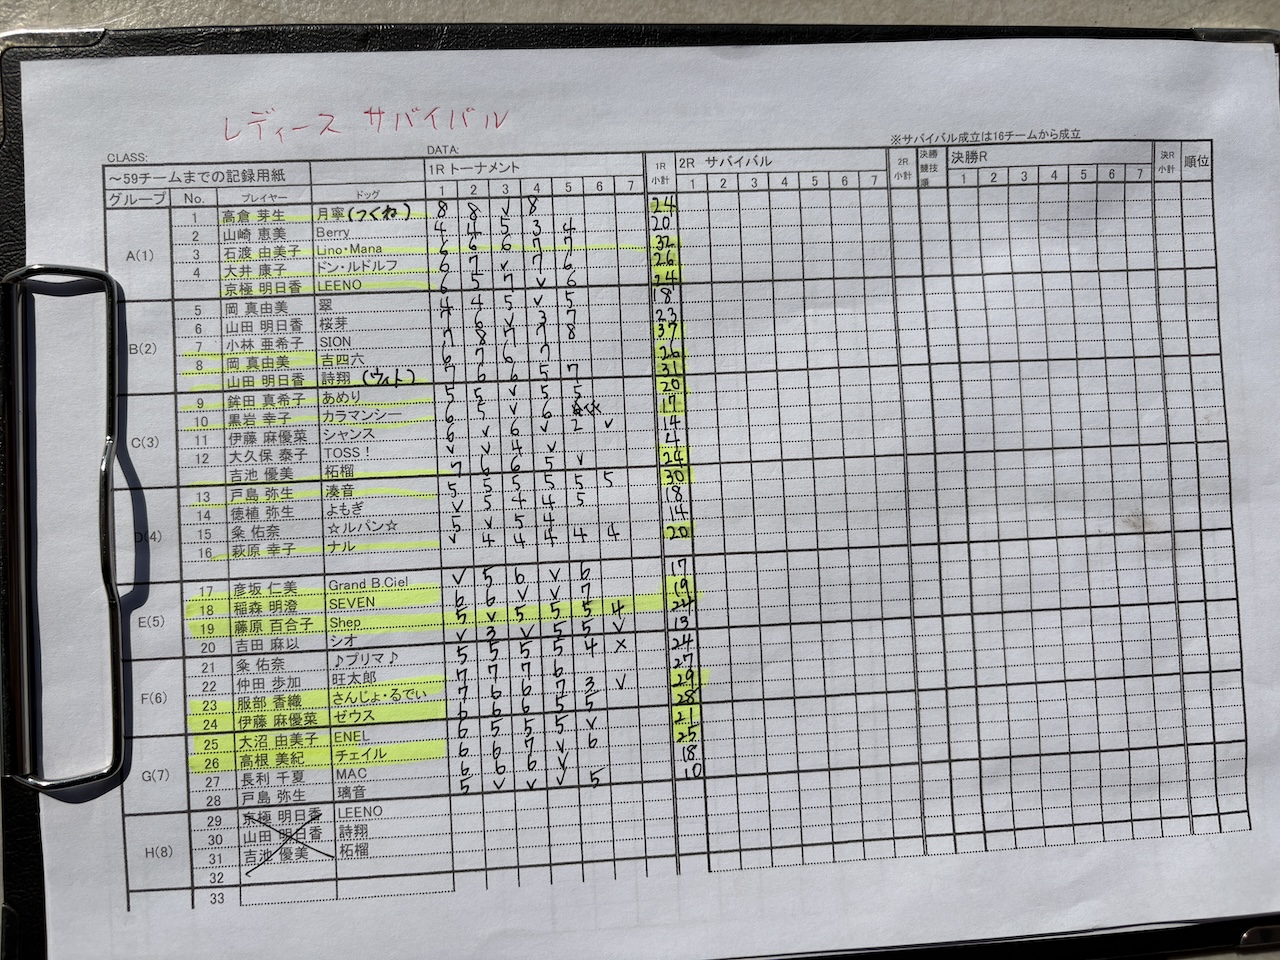 レディース サバイバル
※サバイバル成立は16チームから成立
CLASS: DATA:
～59チームまでの記録用紙 1R トーナメント 1R 小計 2R サバイバル 2R 小計 決勝 競技 順 決勝R 決R 小計 順位
グループ No. プレイヤー ドッグ 1 2 3 4 5 6 7 1 2 3 4 5 6 7 1 2 3 4 5 6 7
A(1)
1 高倉 芽生 月寧(つくね) 8 8 v 8 24
2 山崎 恵美 Berry 4 4 5 3 4 20
3 石渡 由美子 Lino・Mana 6 6 6 7 7 32
4 大井 康子 ドン・ルドルフ 6 7 v 7 6 26
京極 明日香 LEENO 6 5 7 v 6 24
B(2)
5 岡 真由美 翠 4 4 5 v 5 18
6 山田 明日香 桜芽 6 v 3 7 23
7 小林 亜希子 SION 7 8 7 7 8 37
8 岡 真由美 吉四六 6 7 6 7 26
山田 明日香 詩翔 (ウィト) 7 6 6 5 7 31
C(3)
9 鉾田 真希子 あめり 5 5 v 5 5 20
10 黒岩 幸子 カラマンシー 6 5 v 6 17
11 伊藤 麻優菜 シャンス 6 v 6 v 2 v 14
12 大久保 泰子 TOSS！ v v 4 v 4
吉池 優美 柘榴 7 6 6 5 v 24
D(4)
13 戸島 弥生 湊音 5 5 5 5 5 5 30
14 徳植 弥生 よもぎ v 5 4 4 5 18
15 粂 佑奈 ☆ルパン☆ 5 v 5 4 14
16 萩原 幸子 ナル v 4 4 4 4 4 20
E(5)
17 彦坂 仁美 Grand B.Ciel v 5 6 v 6 17
18 稲森 明澄 SEVEN 6 6 v v 7 19
19 藤原 百合子 Shep 5 v 5 5 5 4 24
20 吉田 麻以 シオ v 3 v 5 5 v 13
F(6)
21 粂 佑奈 ♪プリマ♪ 5 5 5 5 4 x 24
22 仲田 歩加 旺太郎 7 7 7 6 27
23 服部 香織 さんじょ・るでぃ 7 6 6 7 3 v 29
24 伊藤 麻優菜 ゼウス 6 6 6 5 5 28
G(7)
25 大沼 由美子 ENEL 6 5 5 5 v 21
26 高根 美紀 チェイル 6 6 7 v 6 25
27 長利 千夏 MAC 6 6 6 v 18
28 戸島 弥生 璃音 5 v v v 5 10
H(8)
29 京極 明日香 LEENO
30 山田 明日香 詩翔
31 吉池 優美 柘榴
32
33